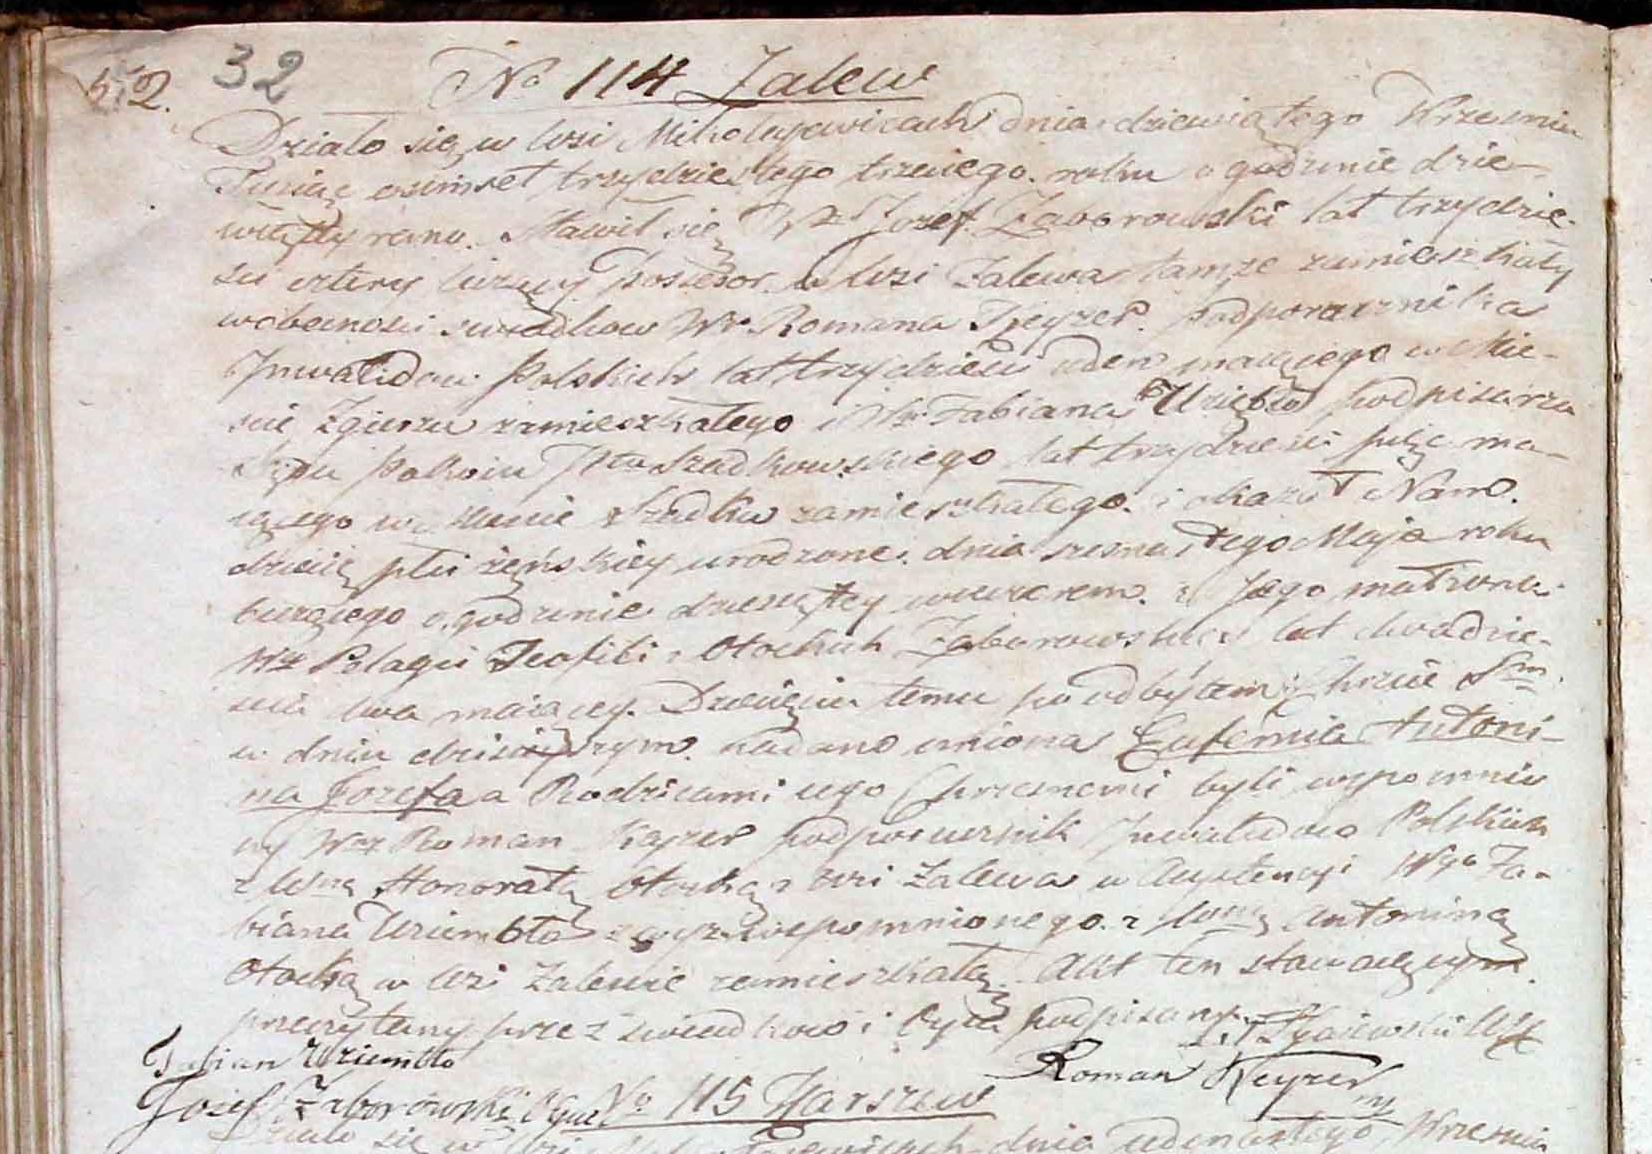 572. 32 No 114 Zalew
Działo się w wsi Mikołajewicach dnia dziewiątego Wrzesnia
Tysiąc osimset trzydziestego trzeciego roku o godzinie dzie-
wiątty rano. Stawił się Wz Jozef Zaborowski lat trzydzie-
sci cztery liczący Possesor w wsi Zalewa tamze zamieszkały
w obecnosci swiadkow Wo Romana Keyzer podporucznika
Jnwalidow Polskich lat trzydziesci ieden maiącego w Mie-
scie Zgierzu zamieszkałego i Wo Fabiana Uziębło podpisarza
Sądu Pokoiu Ptu Szadkowskiego lat trzydziesci pięc ma-
iącego w Miescie Szadku zamieszkałego i okazał Nam
dziecię płci żeńskiey urodzone dnia szesnastego Maja roku
bieżącego o godzinie dziesiątey wieczorem z Jego małzonki
Wz Pelagii Teofili z Otockich Zaborowskiey lat dwadzie-
scia dwa maiącey. Dziecięciu temu po odbytem Chrzcie Stm
w dniu dzisieyszym nadano imiona Eufemia Antoni-
na Jozefa a Rodzicami iego Chrzesnemi byli wspomnio
ny Wz Roman Kayzer podporucznik Jnwalidow Polskich
z Wną Honoratą Otocką z wsi Zalewa w Asystencyi Wgo Fa-
biana Uziembło wyz wspomnionego z Wną Antoniną
Otocką w wsi Zalewie zamieszkałą. Akt ten stawaiącym
przeczytany przez swiadkow i Oyca podpisany.
Fabian Uziembło
Roman Keyzer
Jozef Zaborowski Oyciec No 115 Harszew
Działo się w wsi Mikołajewicach dnia iedenastego Wrzesnia